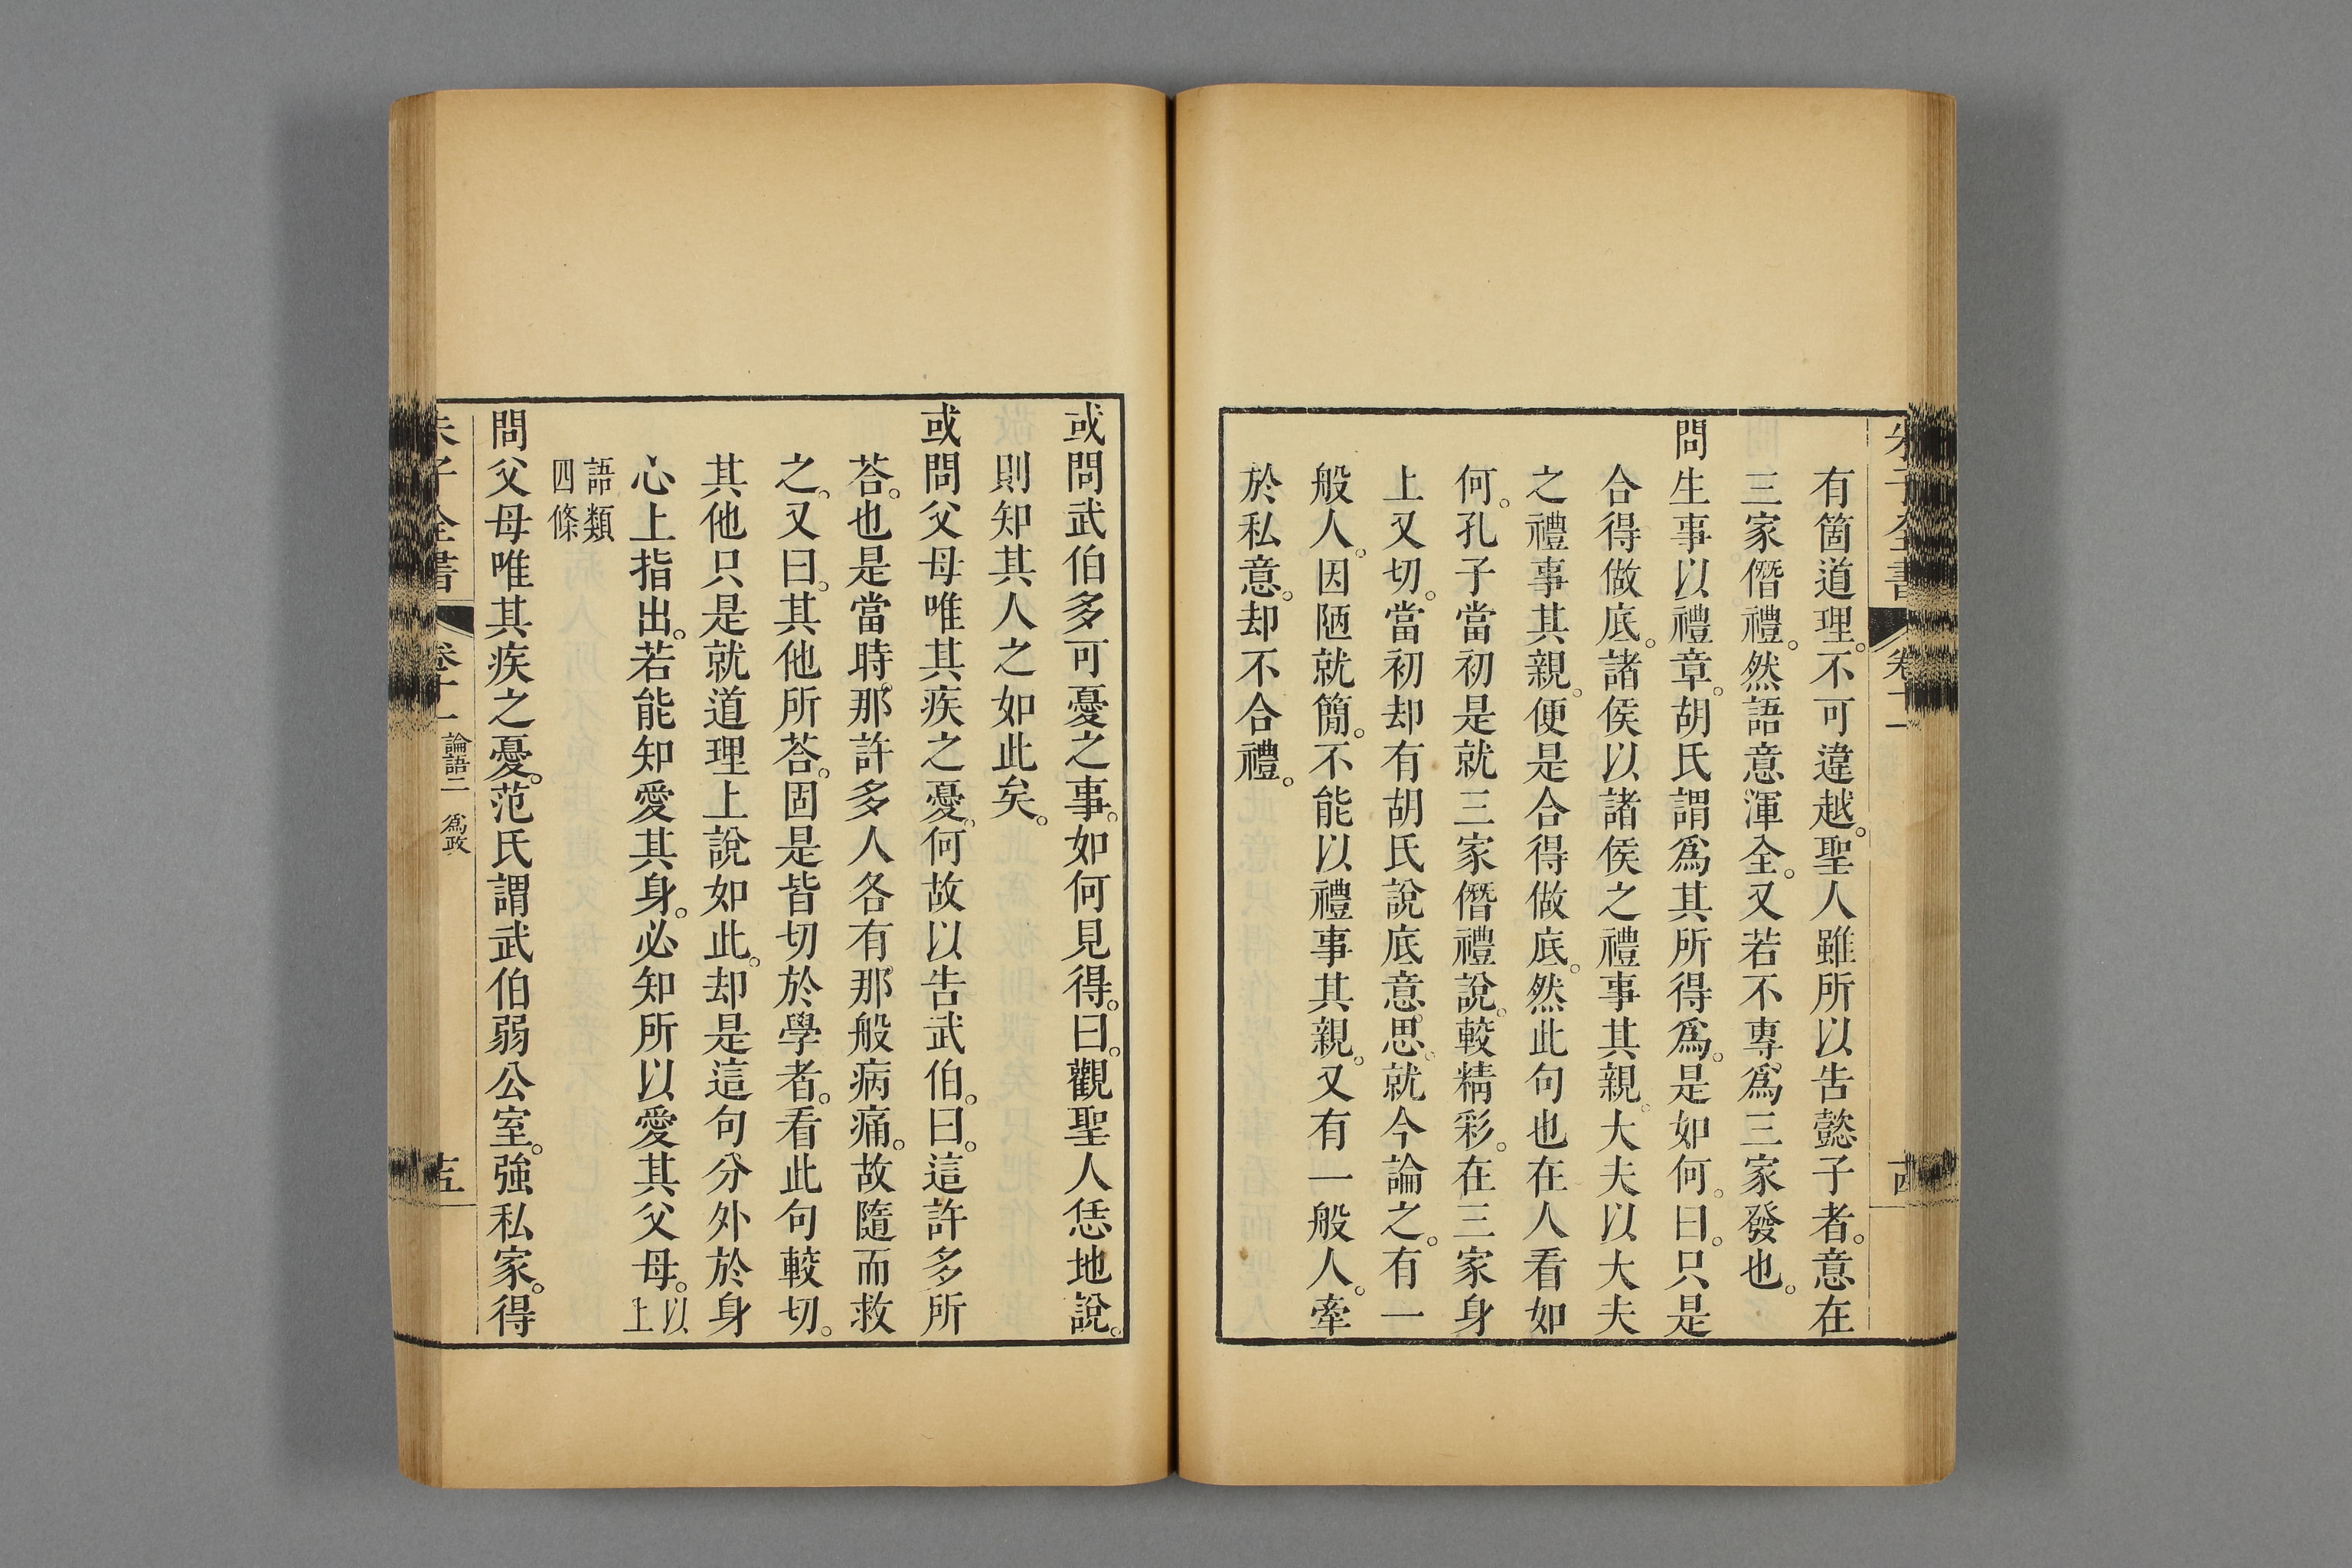 朱子全書 卷十一
有箇道理。不可違越。聖人雖所以告懿子者。意在
三家僭禮。然語意渾全。又若不專爲三家發也。
問生事以禮章。胡氏謂爲其所得爲。是如何。曰。只是
合得做底。諸侯以諸侯之禮事其親。大夫以大夫
之禮事其親。便是合得做底。然此句也在人看如
何。孔子當初是就三家僭禮說。較精彩。在三家身
上又切。當初却有胡氏說底意思。就今論之。有一
般人。因陋就簡。不能以禮事其親。又有一般人。牽
於私意。却不合禮。
或問武伯多可憂之事。如何見得。曰。觀聖人恁地說。
則知其人之如此矣。
或問父母唯其疾之憂。何故以告武伯。曰。這許多所
荅。也是當時那許多人各有那般病痛。故隨而救
之。又曰。其他所荅。固是皆切於學者。看此句較切。
其他只是就道理上說如此。却是這句分外於身
心上指出。若能知愛其身。必知所以愛其父母。以上
語類四條
問父母唯其疾之憂。范氏謂武伯弱公室。強私家。得
朱子全書 卷十一 論語二 爲政 十五